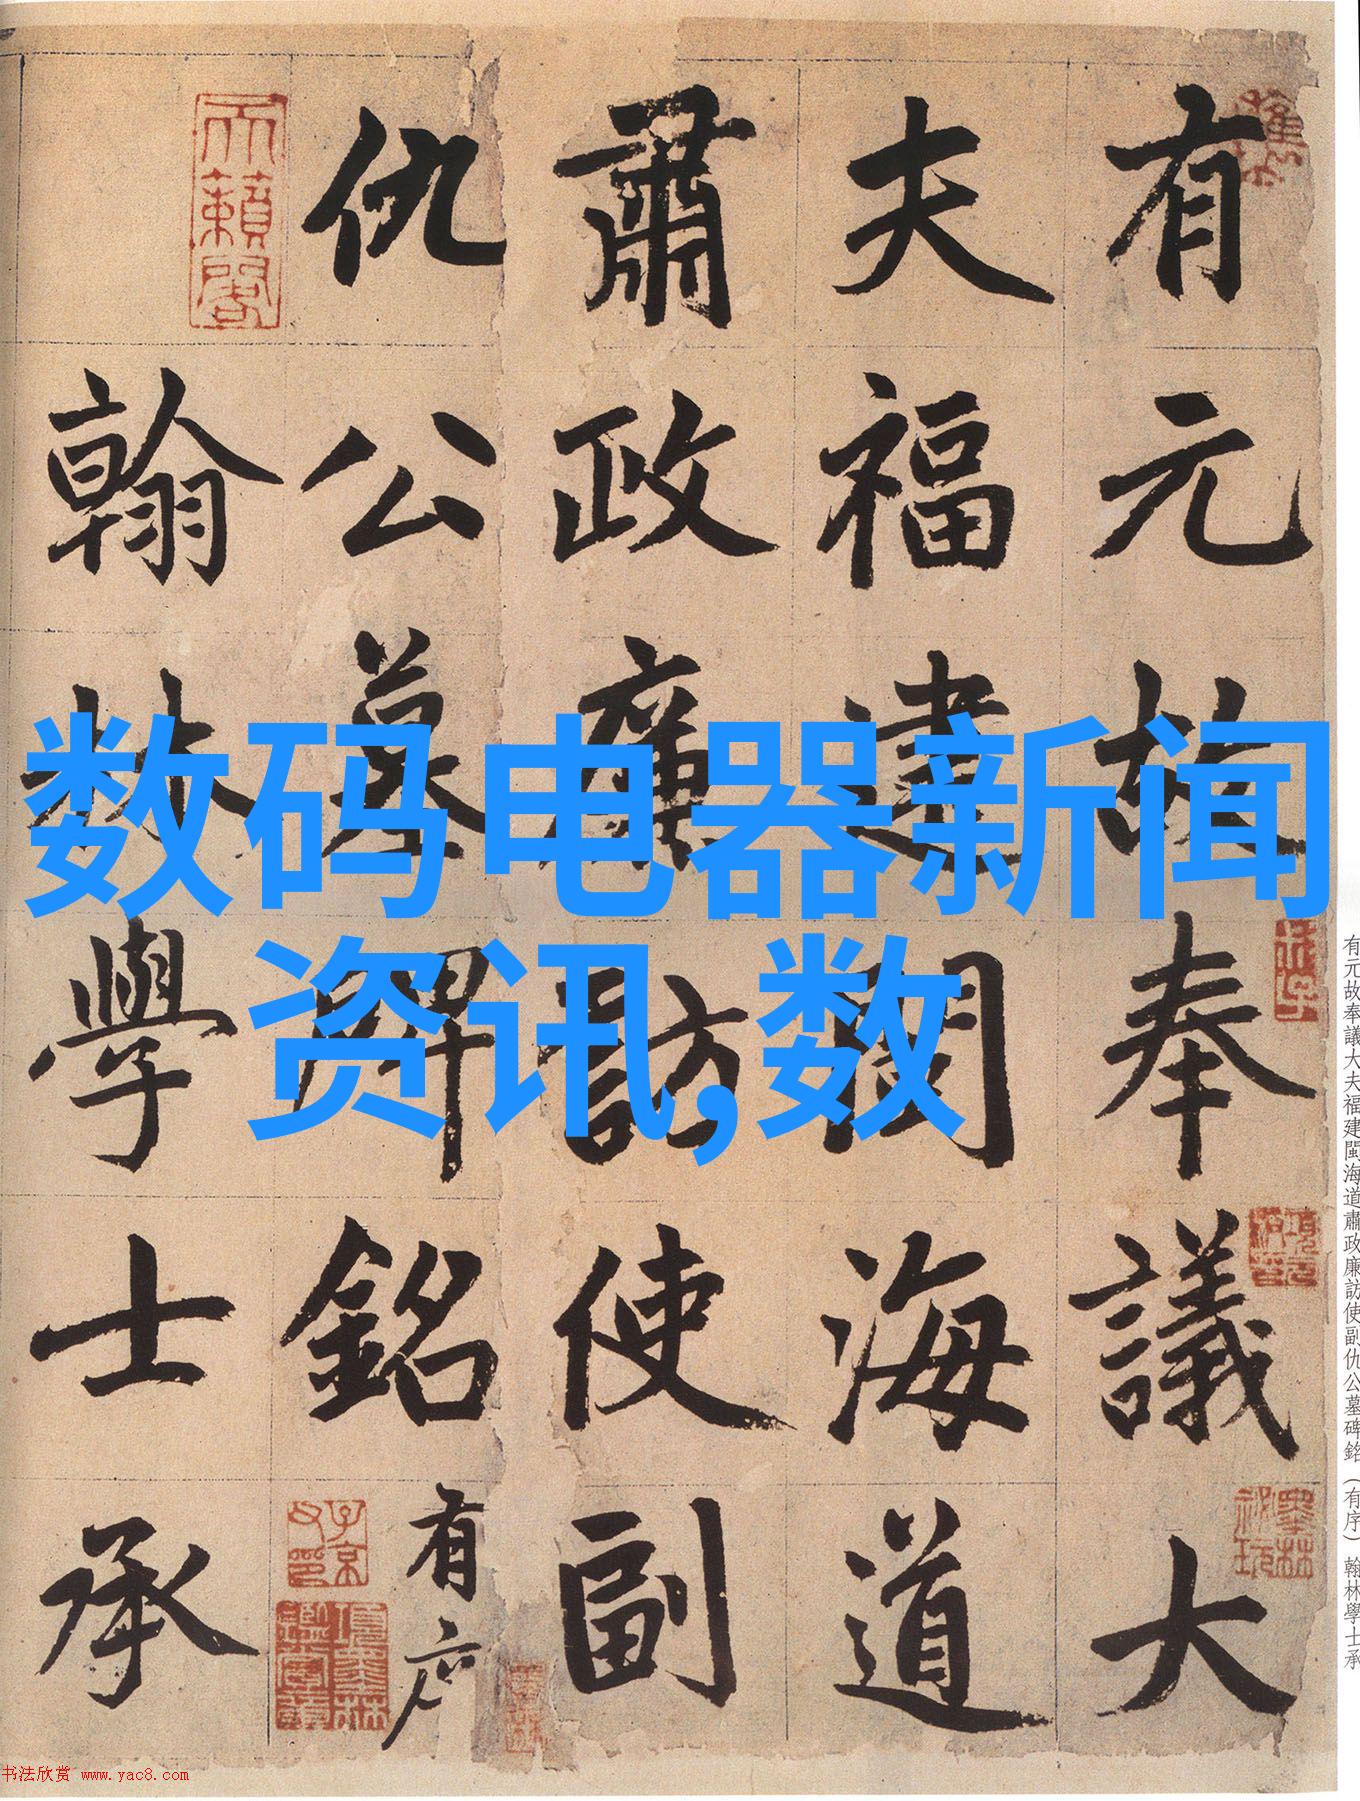 有元故奉議大
夫福建閩海道
肅政廉訪使副
仇公墓碑銘有序
翰林學士承
数码电器新闻
资讯,数
天籟閣
子京父印
有元故奉議大夫福建閩海道肅政廉訪使副仇公墓碑銘（有序）翰林學士承
书法欣赏 www.yac8.com